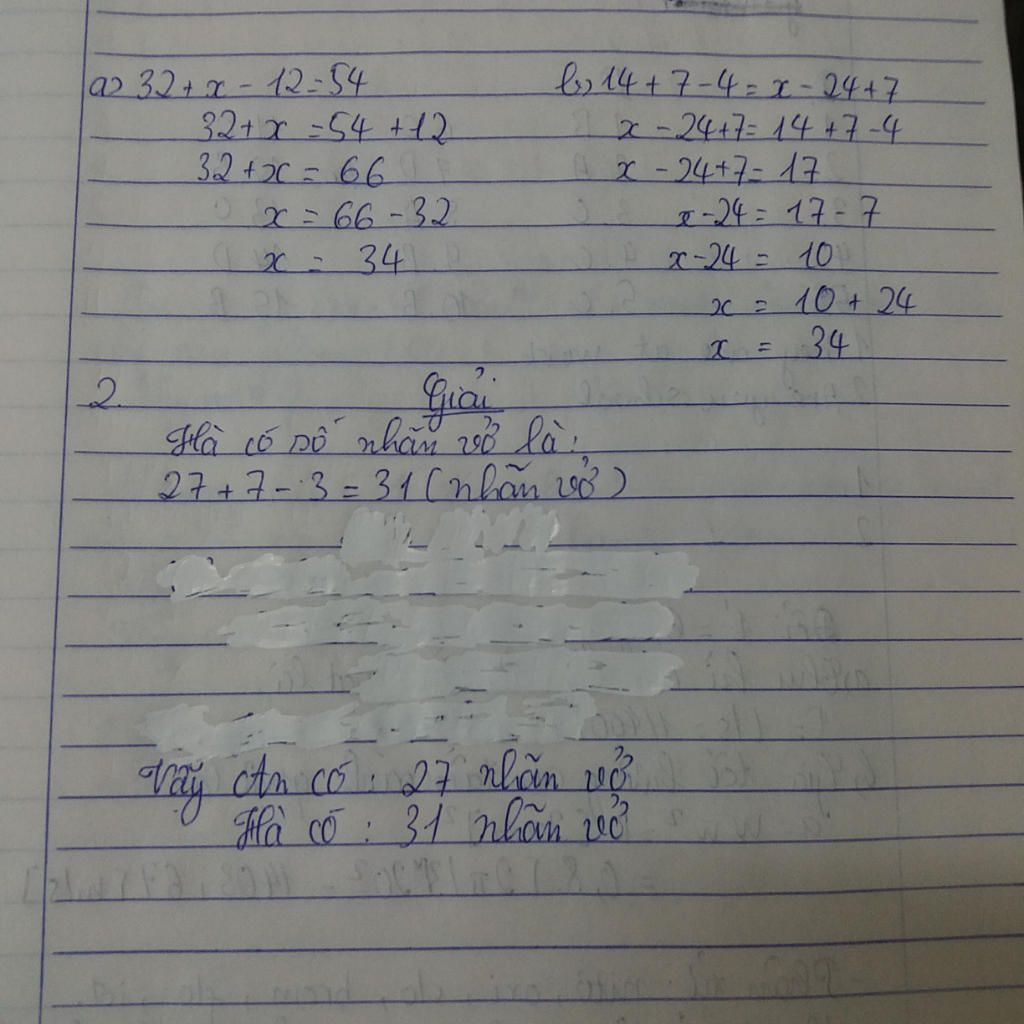 a) 32 + x - 12 = 54
32 + x = 54 + 12
32 + x = 66
x = 66 - 32
x = 34
b) 14 + 7 - 4 = x - 24 + 7
x - 24 + 7 = 14 + 7 - 4
x - 24 + 7 = 17
x - 24 = 17 - 7
x - 24 = 10
x = 10 + 24
x = 34
2. Giải
Hà có số nhãn vở là:
27 + 7 - 3 = 31 (nhãn vở)
Vậy An có : 27 nhãn vở
Hà có : 31 nhãn vở